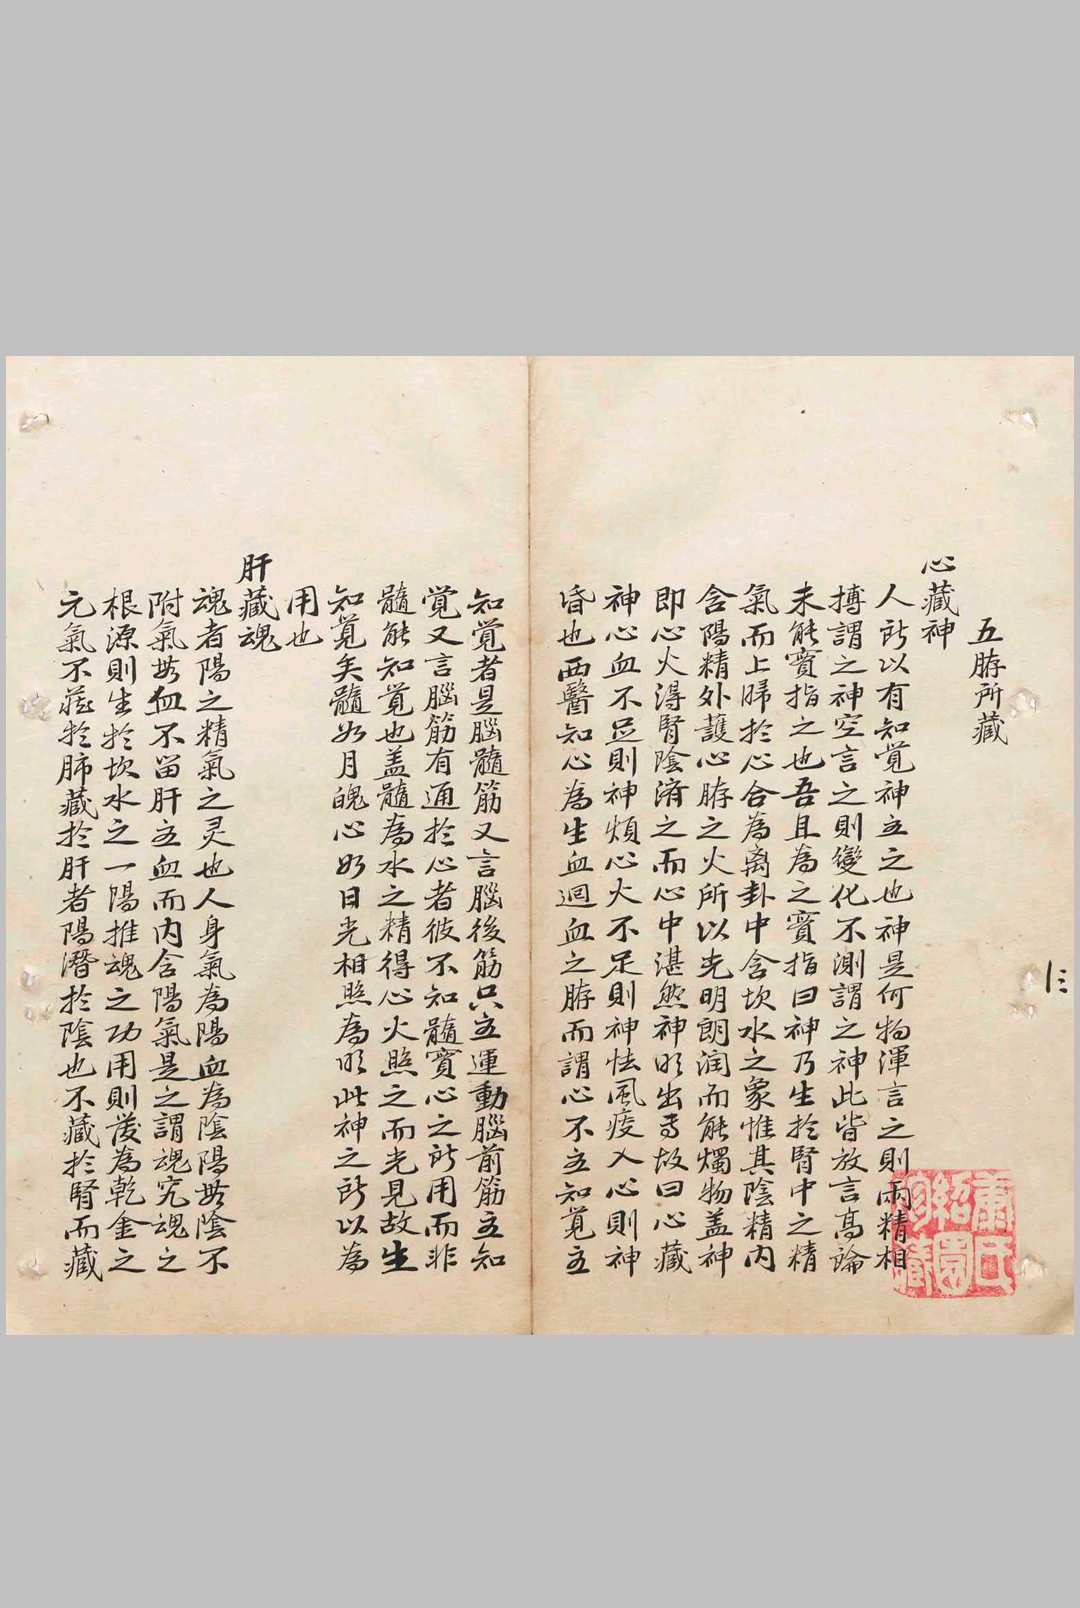 五脏所藏
心藏神
人所以有知覚神主之也神是何物渾言之則兩精相
搏謂之神空言之則變化不測謂之神此皆放言高論
未能實指之也吾且為之實指曰神乃生於腎中之精
氣而上歸於心合為离卦中含坎水之象惟其陰精内
含陽精外護心脏之火所以光明朗润而能燭物盖神
即心火得腎陰濟之而心中湛然神明出焉故曰心藏
神心血不足則神煩心火不足則神怯風痰入心則神
昏也西醫知心為生血迴血之脏而謂心不主知覚主
知覚者是腦髓筋又言腦後筋只主運動腦前筋主知
覚又言腦筋有通於心者彼不知髓實心之所用而非
髓能知覚也盖髓為水之精得心火照之而光見故生
知覚矣髓如月魄心如日光相照為明此神之所以為
用也
肝藏魂
魂者陽之精氣之灵也人身氣為陽血為陰陽無陰不
附氣無血不留肝主血而内含陽氣是之謂魂究魂之
根源則生於坎水之一陽推魂之功用則發為乾金之
元氣不藏於肺藏於肝者陽潛於陰也不藏於腎而藏
蕭氏
紹園
珍藏